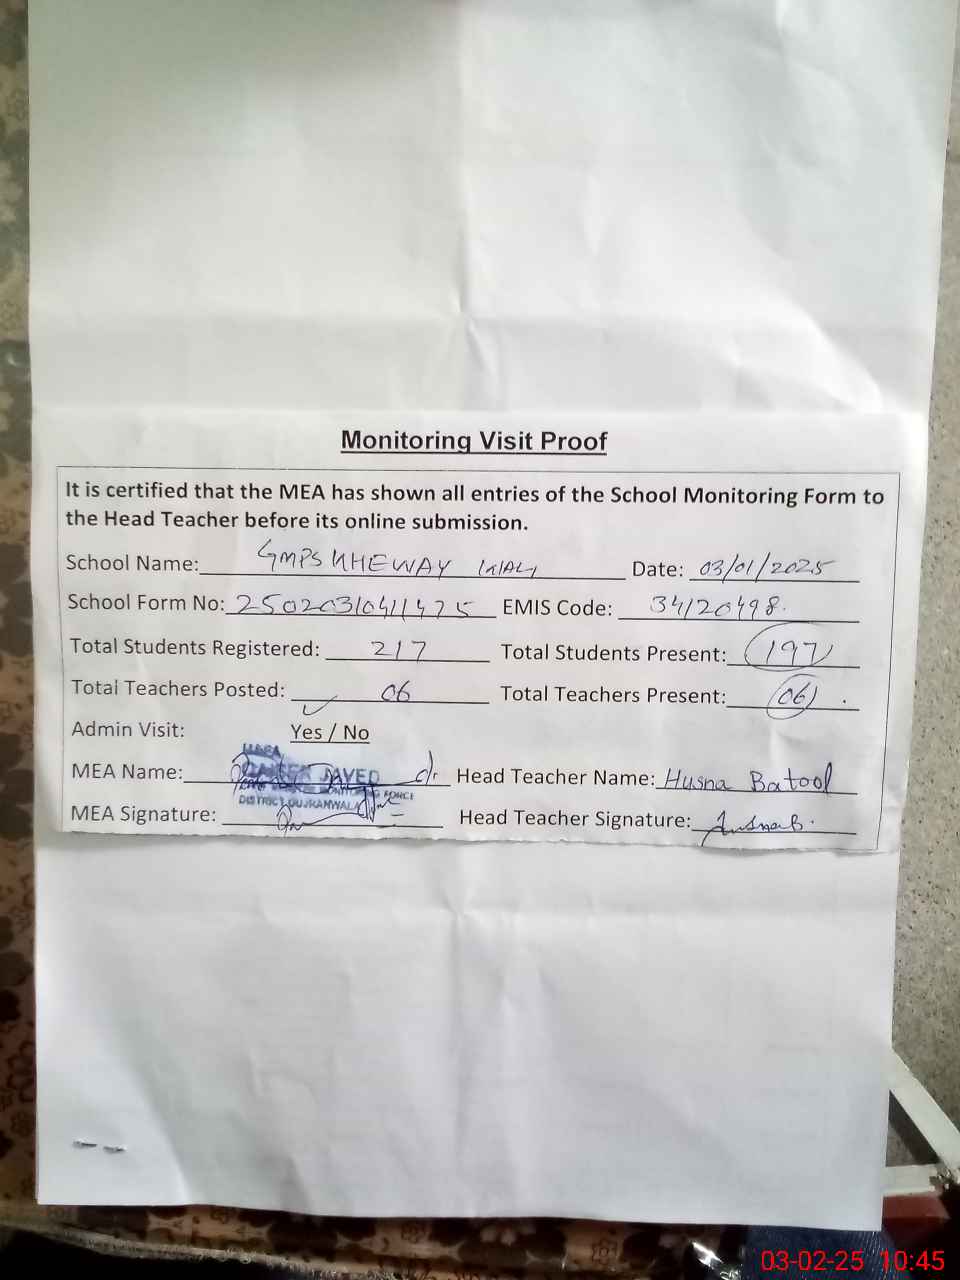 Monitoring Visit Proof
It is certified that the MEA has shown all entries of the School Monitoring Form to
the Head Teacher before its online submission.
School Name: GMPS KHEWAY WALI Date: 03/01/2025
School Form No: 25020310411475 EMIS Code: 34120498.
Total Students Registered: 217 Total Students Present: 197
Total Teachers Posted: 06 Total Teachers Present: 06 .
Admin Visit: Yes / No
MEA Name: JAVED Head Teacher Name: Husna Batool
MONITORING FORCE
DISTRICT GUJRANWALA
MEA Signature: Head Teacher Signature: HusnaB.
03-02-25 10:45